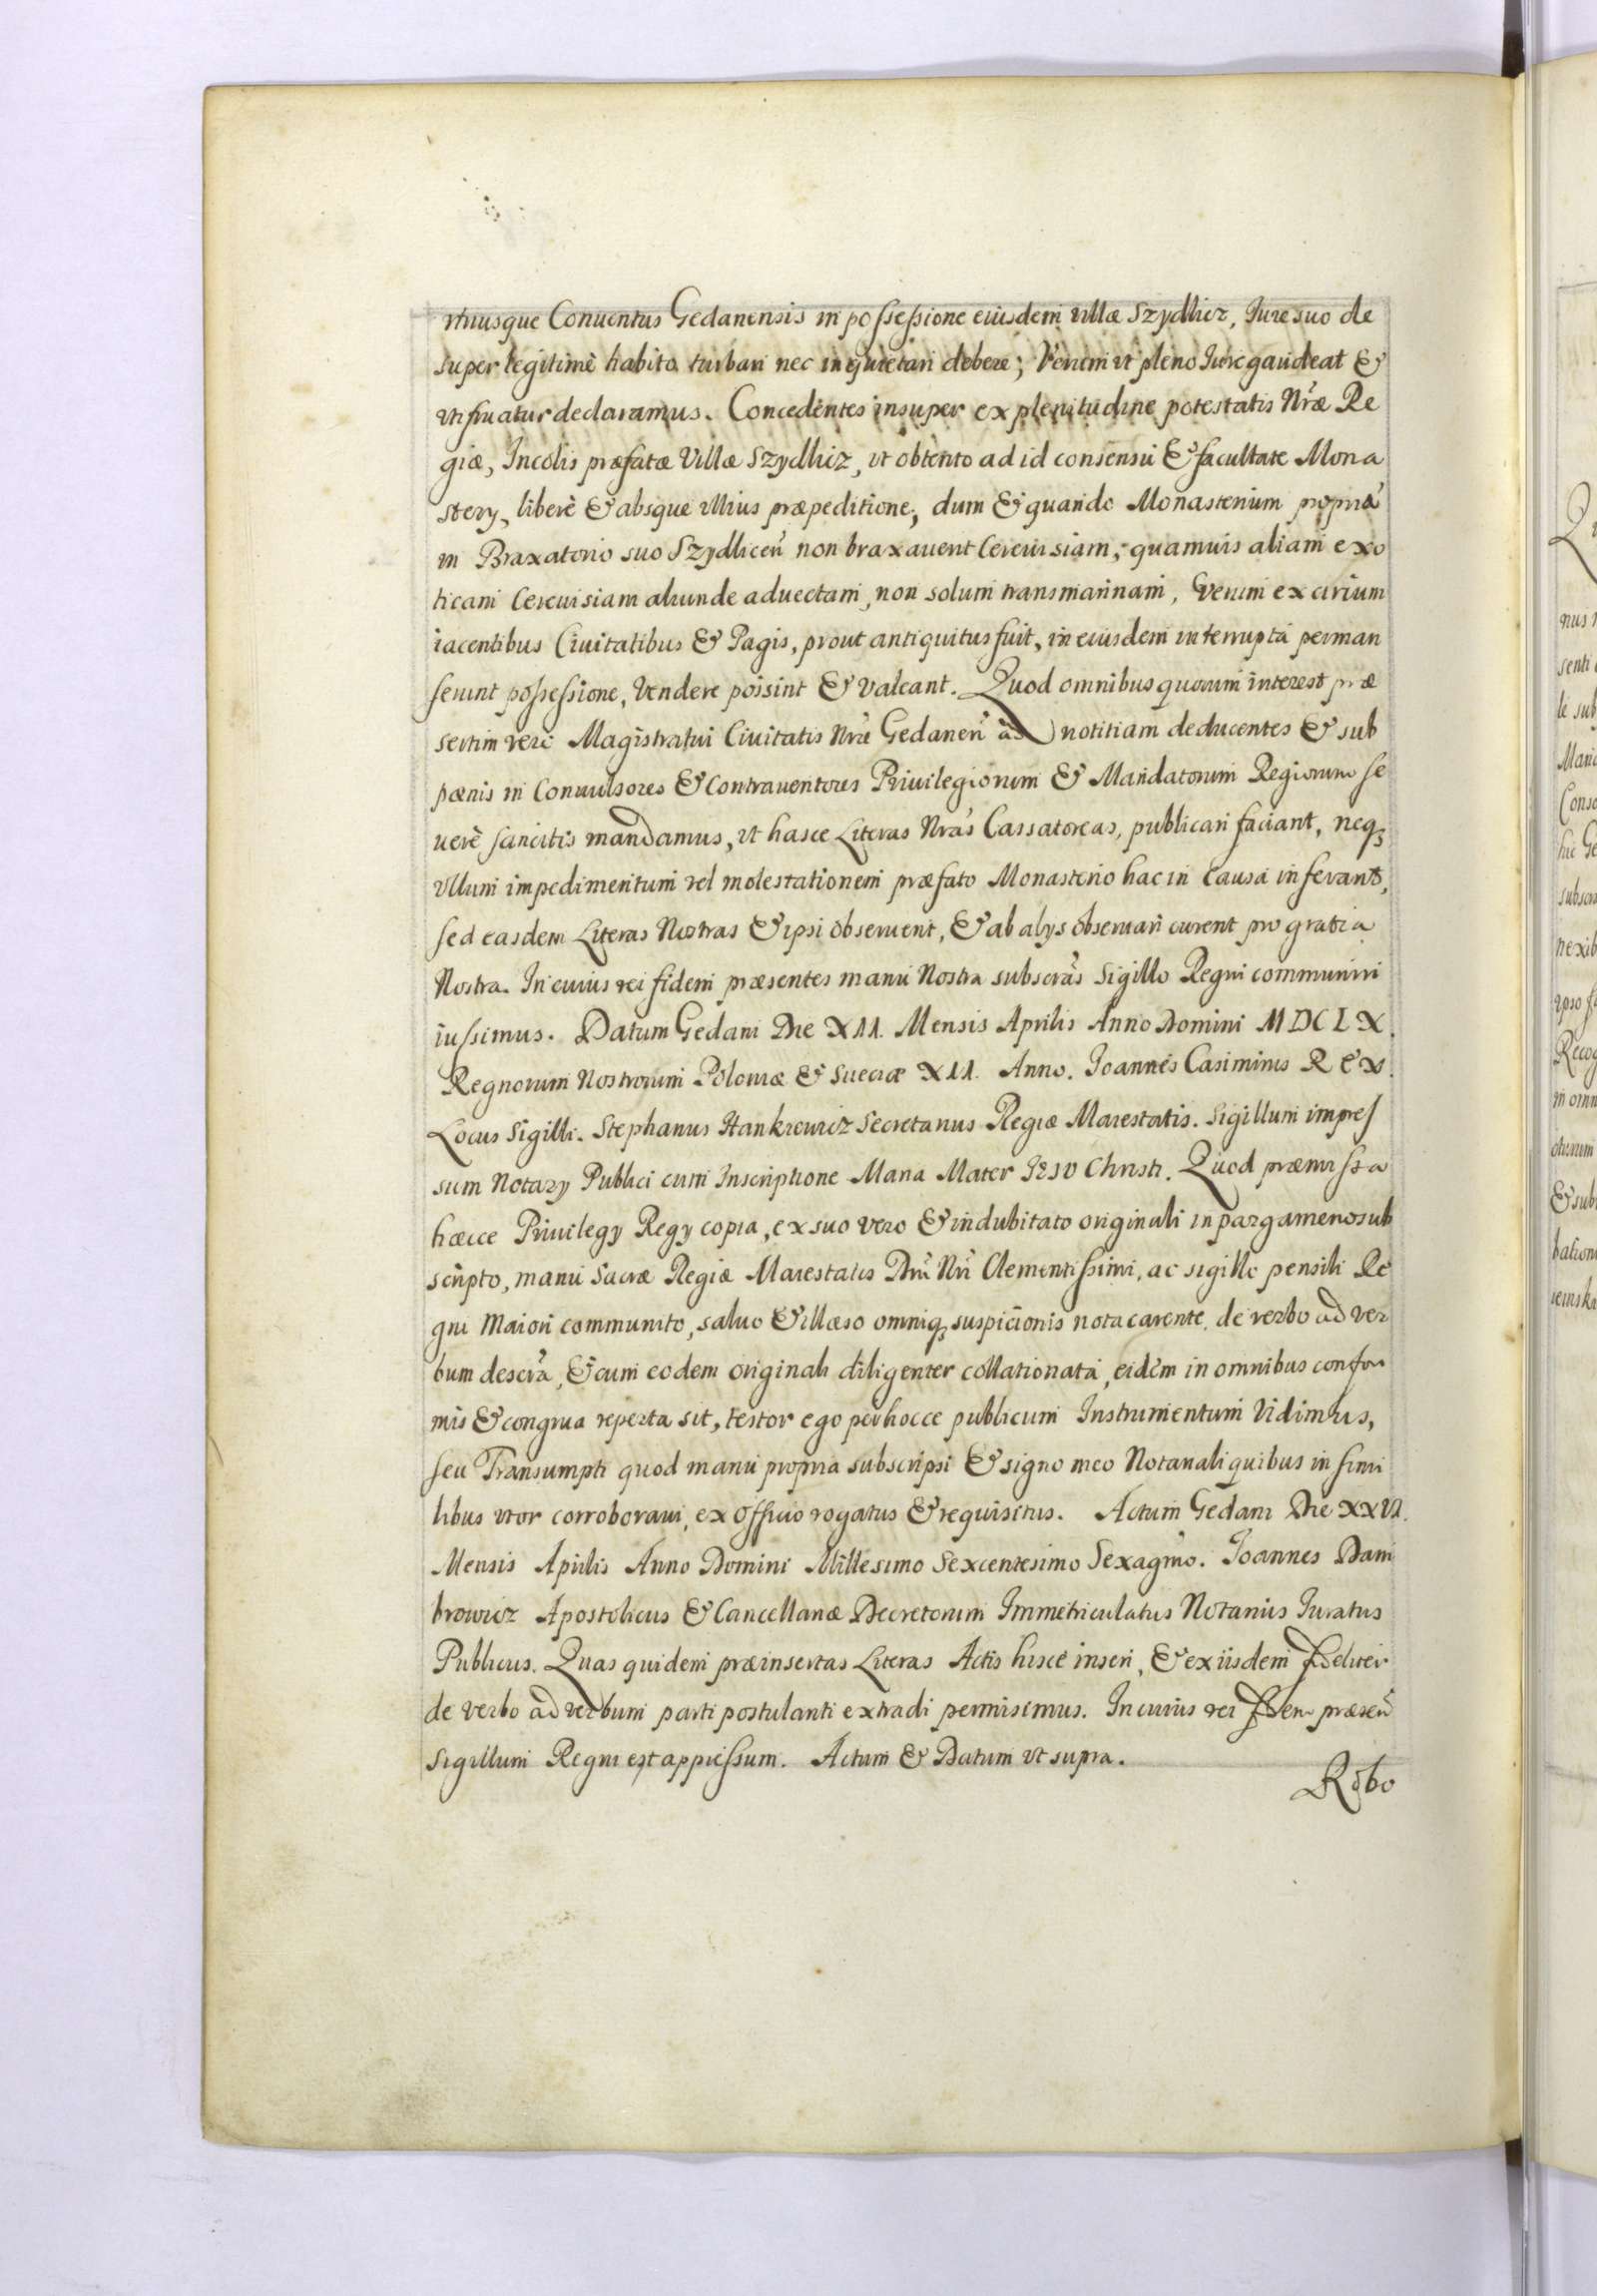 vtriusque Conuentus Gedanensis in possessione eiusdem villæ Szydlicz, Iure suo de
super legitimè habito turbari nec inquietari debere; Verum vt pleno Iure gaudeat &
vtifruatur declaramus. Concedentes insuper ex plenitudine potestatis Nr̃æ Re
giæ, Incolis præfatæ Villæ Szydlicz, vt obtento ad id consensu & facultate Mona
stery, liberè & absque vllius præpeditione, dum & quando Monasterium propriā
in Braxatorio suo Szydliceñ non braxauerit Cereuisiam, quamuis aliam exo
ticam Cereuisiam aliunde aduectam, non solum transmarinam, Verum ex circum
iacentibus Ciuitatibus & Pagis, prout antiquitus fuit, in eiusdem interrupta perman
serunt possessione, Vendere possint & valeant. Quod omnibus quorum interest præ
sertim verò Magistratui Ciuitatis Nr̃æ Gedaneñ ad notitiam deducentes & sub
pænis in Conuulsores & Contrauentores Priuilegiorum & Mandatorum Regiorum se
uerè sancitis mandamus, vt hasce Literas Nr̃as Cassatoreas, publicari faciant, neq3
vllum impedimentum vel molestationem præfato Monasterio hac in Causa inferant,
sed easdem Literas Nostras & ipsi obseruent, & ab alys obseruari curent pro gratia
Nostra. In cuius rei fidem præsentes manu Nostra subscr̃as Sigillo Regni communiri
iussimus. Datum Gedani Die XII. Mensis Aprilis Anno Domini MDCLX.
Regnorum Nostrorum Poloniæ & Sueciæ XII. Anno. Ioannes Casimirus REX.
Locus Sigilli. Stephanus Hankiewicz Secretarius Regiæ Maiestatis. Sigillum impres
sum Notary Publici cum Inscriptione Maria Mater IESV Christi. Quod præmissa
hæcce Priuilegy Regy copia, ex suo vero & indubitato originali in pargameno sub
scripto, manu Sacræ Regiæ Maiestatis Dñi Nr̃i Clementissimi, ac sigillo pensili Re
gni Maiori communito, saluo & illæso omniq3 suspicionis nota carente, de verbo ad ver
bum descr̃a, & cum eodem originali diligenter collationata, eidem in omnibus confor
mis & congrua reperta sit, testor ego per hocce publicum Instrumentum Vidimus,
seu Transumpti quod manu propria subscripsi & signo meo Notariali quibus in simi
libus vtor corroboraui, ex officio rogatus & requisitus. Actum Gedani Die XXVI.
Mensis Aprilis Anno Domini Millesimo Sexcentesimo Sexagm̃o. Ioannes Dam
browicz Apostolicus & Cancellariæ Decretorum Immatriculatus Notarius Iuratus
Publicus. Quas quidem præinsertas Literas Actis hisce inseri, & ex iisdem fideliter
de verbo ad verbum parti postulanti extradi permisimus. In cuius rei fidem præseñ
Sigillum Regni est appressum. Actum & Datum vt supra.
Robo